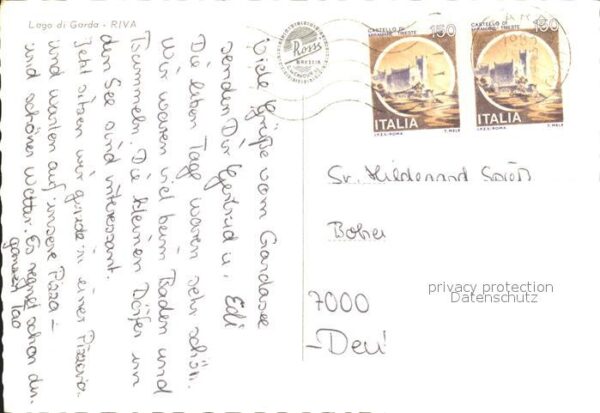 Lago di Garda - RIVA
Viele Grüße vom Gardasee
senden Dir Gertrud u. Edi
Die lieben Tage waren sehr schön.
Wir waren viel beim Baden und
Bummeln. Die kleinen Dörfer um
den See sind interessant.
Jetzt sitzen wir gerade in einer Pizzeria
und warten auf unsere Pizza –
und schönes Wetter. Es regnet schon den
ganzen Tag
Ross
BRESCIA
CASTELLO DI
MIRAMARE TRIESTE
150
ITALIA
I.P.Z.S./ROMA
T. MELE
CASTELLO DI
MIRAMARE TRIESTE
150
ITALIA
I.P.Z.S./ROMA
T. MELE
7000
privacy protection
Datenschutz